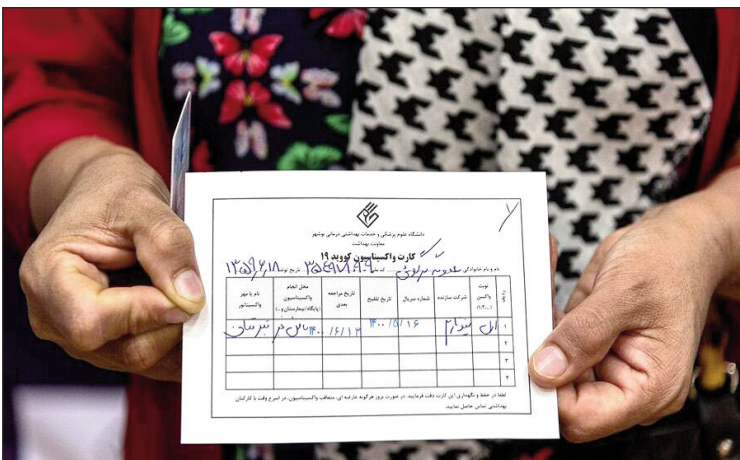 دانشگاه علوم پزشکی و خدمات بهداشتی درمانی بوشهر
معاونت بهداشت
کارت واکسیناسیون کووید ۱۹
نام و نام خانوادگی کد ملی تاریخ تولد ۱۳۵۹/۶/۱۸
ردیف نوبت واکسن (۱،۲،...) شرکت سازنده شماره سریال تاریخ تلقیح تاریخ مراجعه بعدی محل انجام واکسیناسیون (پایگاه/بیمارستان و...) نام یا مهر واکسیناتور
۱ اول ۱۴۰۰/۵/۱۶ ۱۴۰۰/۶/۱۳
۲
۳
۴
لطفا در حفظ و نگهداری این کارت دقت فرمایید. در صورت بروز هرگونه عارضه ای، متعاقب واکسیناسیون، در اسرع وقت با کارکنان
بهداشتی تماس حاصل نمایید.